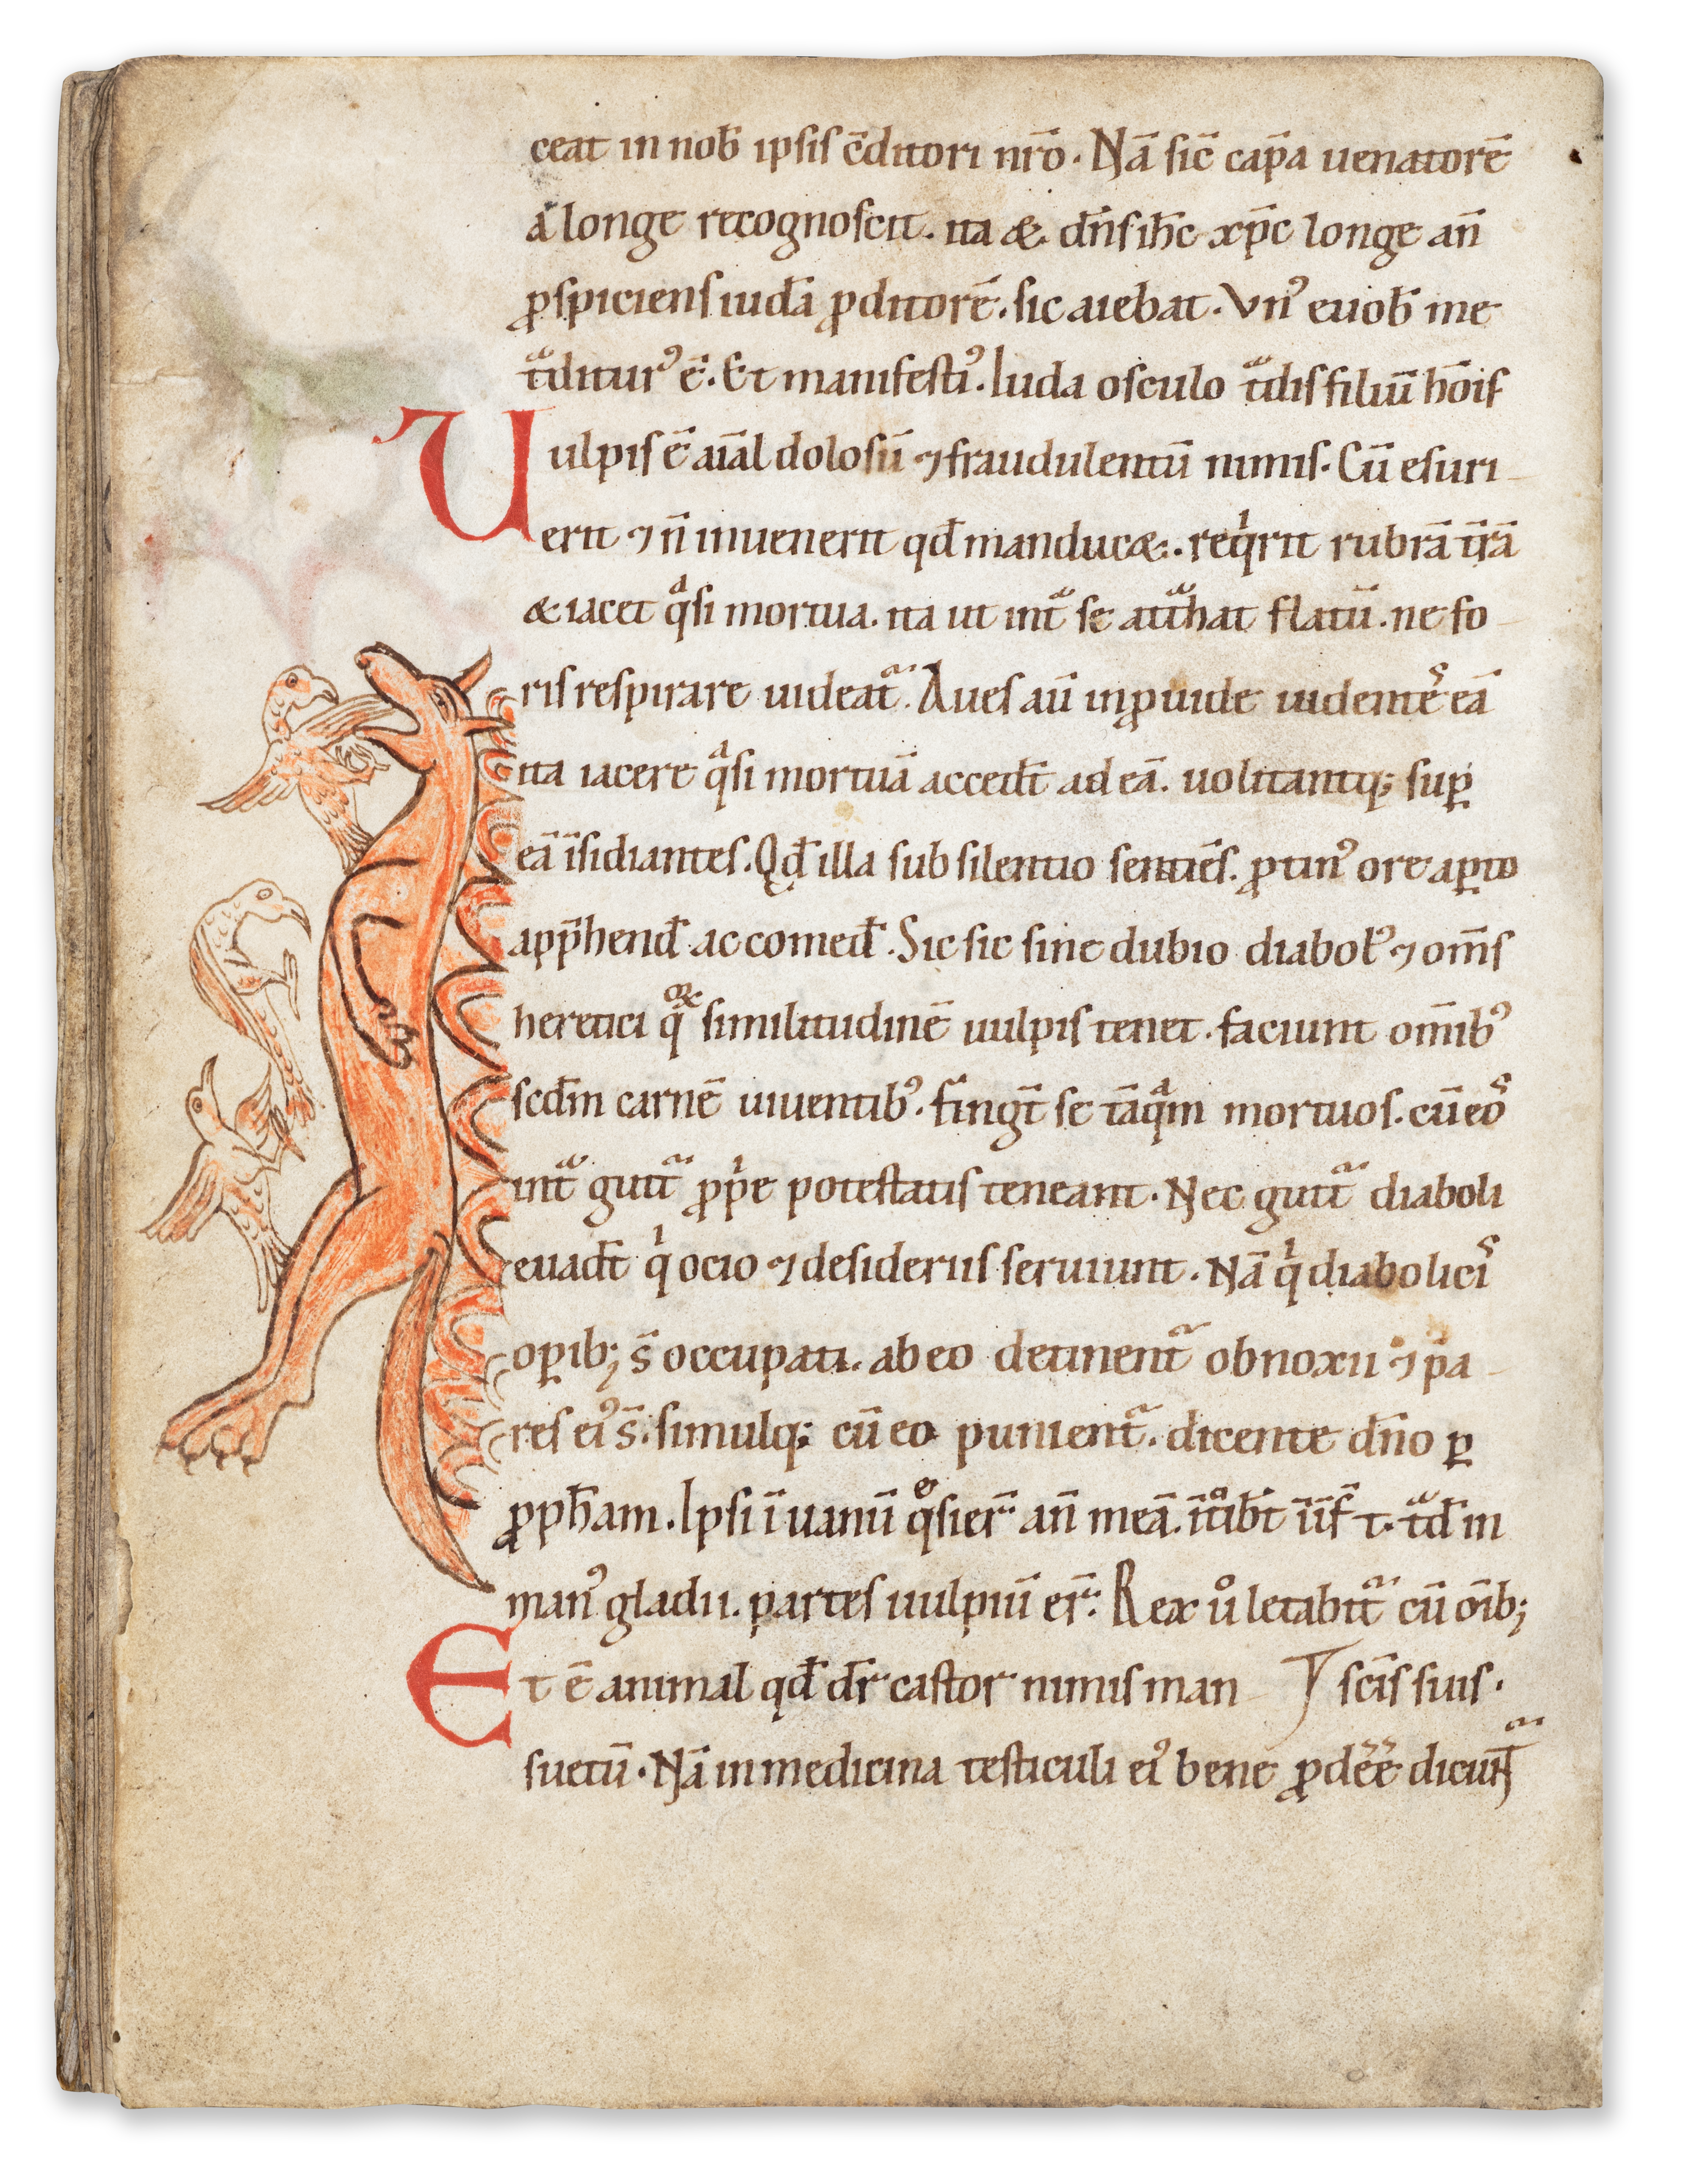 ceat in nob̄ ipsis c̄ditori nr̄o. Nā sic̄ cap̄a uenatorē
a longe recognoscit. ita & dn̄s ih̄c xp̄c longe an̄
ꝓspiciens iudā ꝓditorē. sic aiebat. Vnꝰ euob̄ me
tᷓditurꝰ ē. Et manifestiꝰ. Iuda osculo tᷓdis filiū hōis
Uulpis ē aīal dolosū ⁊ fraudulentū nimis. Cū esuri
erit ⁊ n̄ inuenerit qd̄ manducæ. reqͥrit rubrā tr̄ā
& iacet qᷓsi mortua. ita ut intᷓ se attᷓhat flatū. ne fo
ris respirare uideat᷑. Aues aū inꝓuide uidentēˢ eā
ita iacere qᷓsi mortuā accedt̄ ad eā. uolitantq; suꝑ
eā īsidiantes. Qd̄ illa sub silentio sentiēs. ꝓtinꝰ ore aꝑto
app̄hend̄ ac comed̄. Sic sic sine dubio diabol̄ꝰ ⁊ om̄s
heretici qͦꝝ similitudinē uulpis tenet. faciunt om̄ibꝰ
scd̄m carnē uiuentibꝰ. fingt̄ se tāqᷓm mortuos. cū eoˢ
intᷓ gutt᷑ ꝓpͥe potestatis teneant. Nec gutt᷑ diaboli
euadt̄ qͥ ocio ⁊ desideriis seruiunt. Nā qͥ diaboliciˢ
oꝑib; s̄ occupati. ab eo detinent᷑ obnoxii ⁊ pa
res eiꝰ s̄. simulq; cū eo punient᷑. dicente dn̄o ꝑ
ꝓph̄am. Ipsi ī uanū qͤsier᷑ an̄ meā. ītͦibt̄ īīf̄ t. tᷓd̄ in
manꝰ gladii. partes uulpiū er᷑. Rex uͦ letabit᷑ cū ōib;
Et ē animal qd̄ dr̄ castor nimis man scīs suis.
suetū. Nā in medicina testiculi eiꝰ bene ꝓdēē dicunt᷑